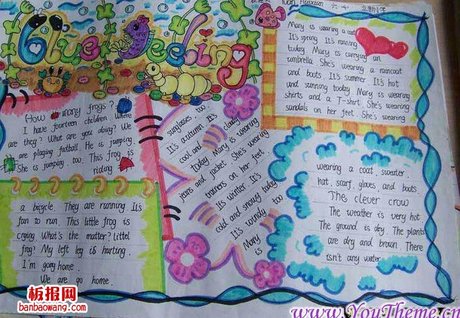 Blue Feeling
How many frogs?
I have fourteen children Where
are they? What are you doing? We
are playing football. He is jumping
She is jumping too. This frog is
riding
a bicycle They are running It's
fun to run. This little frog is
crying What's the matter? Littel
frog? My left leg is harting.
I'm going home
We are go home
sunglasses too
It's autumn It's
cool and cloudy
today Mary is wearing
jeans and She's wearing
on her feet
It's winter It's
cold and snowy today
It's windy too
Mary is
Mary is wearing a
It's spring It's raining
today Mary is carrying an
umbrella She's wearing a raincoat
and boots It's summer It's hot
and sunning today Mary is wearing
shirts and a T-shirt. She's wearing
sandals on her feet She's wearing
wearing a coat sweater
hat, scarf, gloves and boots
The clever crow
The weather is very hot
The ground is dry. The plants
are dry and brown There
isn't any water
板报网
banbaowang.com
www.YouTheme.cn